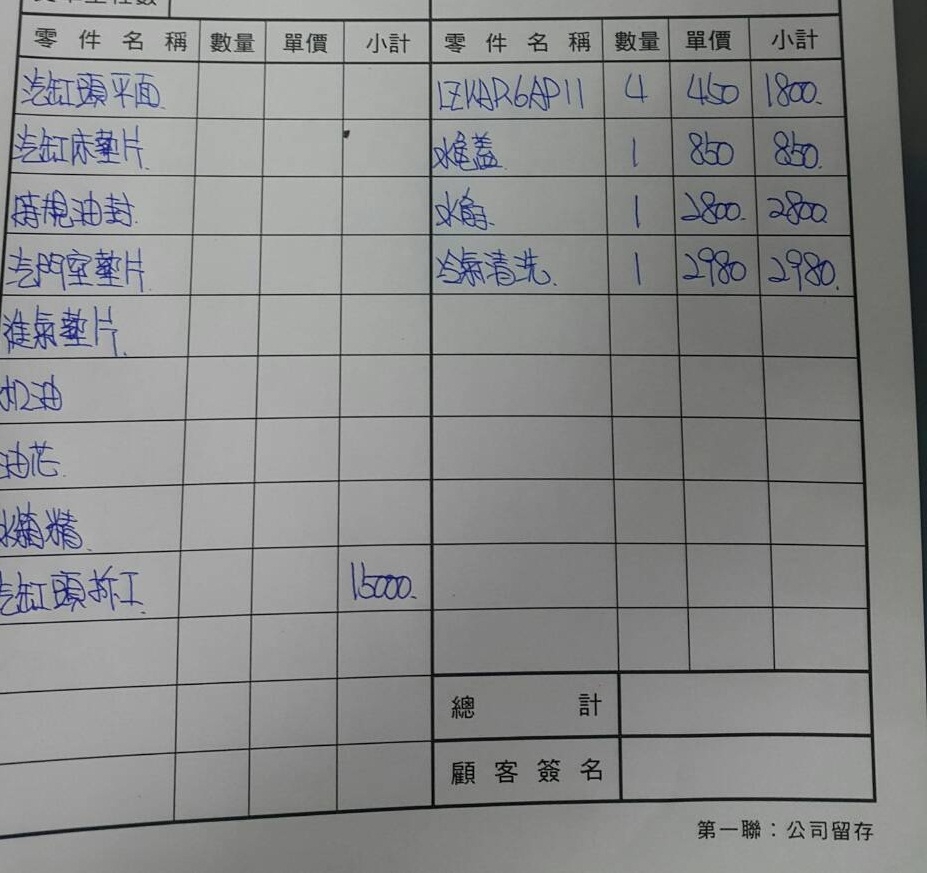 零件名稱 數量 單價 小計 零件名稱 數量 單價 小計
汽缸頭平面 IZKAR6AP11 4 450 1800.
汽缸床墊片 水龟蓋 1 850 850.
時規油封. 1 2800. 2800
汽門室墊片 冷氣清洗. 1 2980 2980.
進氣墊片.
油芯.
水箱精.
汽缸頭拆工. 15000.
總計
顧客簽名
第一聯：公司留存